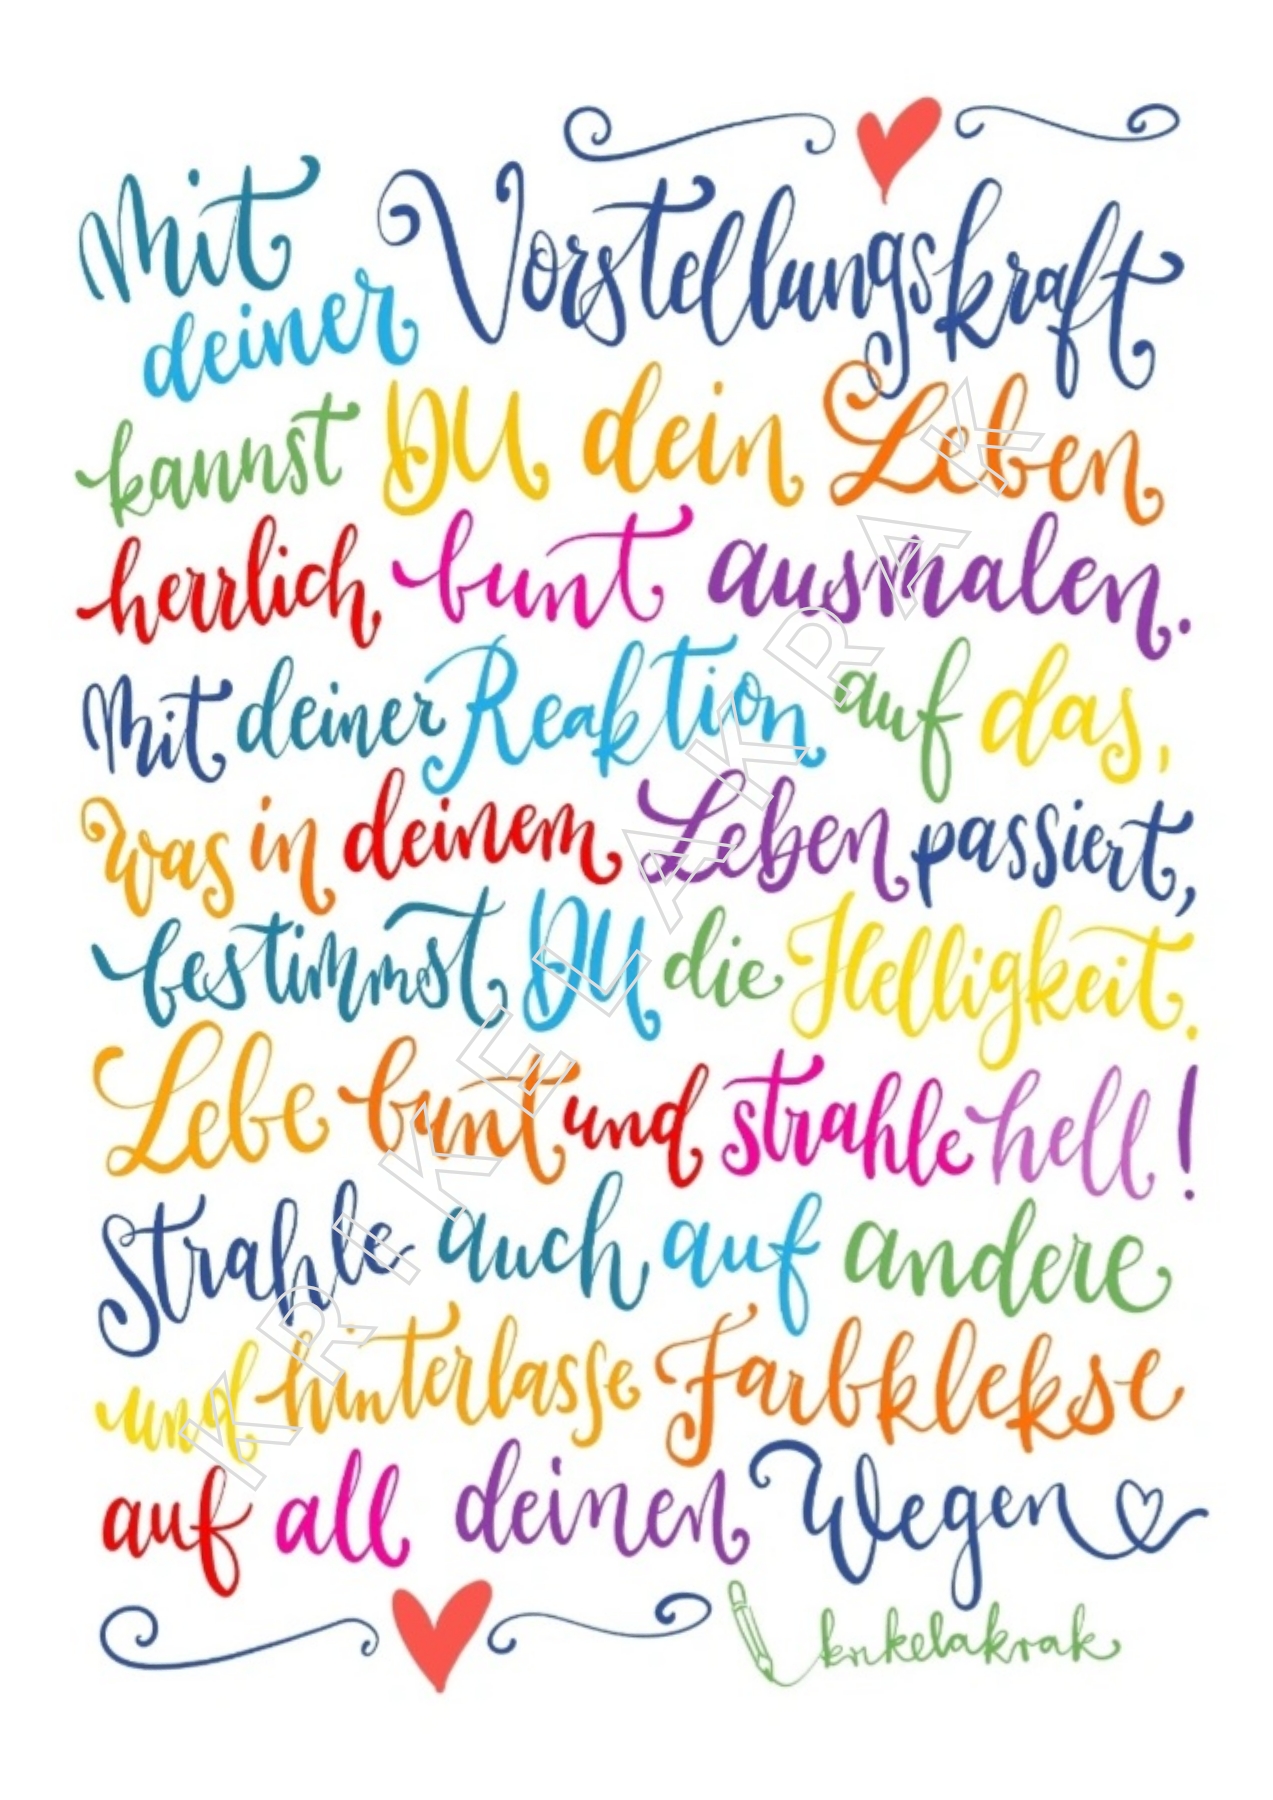 Mit deiner Vorstellungskraft
kannst DU dein Leben
herrlich bunt ausmalen.
Mit deiner Reaktion auf das,
was in deinem Leben passiert,
bestimmst DU die Helligkeit.
Lebe bunt und strahle hell!
Strahle auch auf andere
und hinterlasse Farbkleckse
auf all deinen Wegen
krikelakrak
KRIKELAKRAK